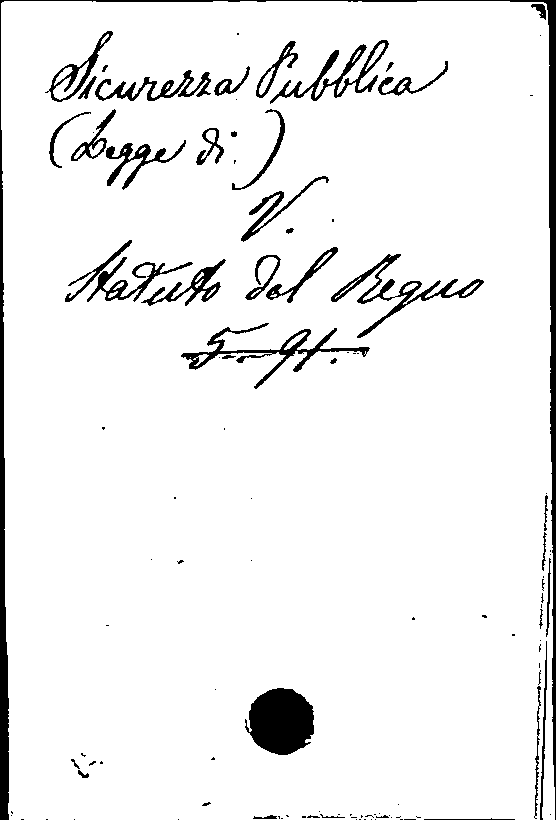 Sicurezza Pubblica
(Legge di.)
V.
Statuto del Regno
5.-91.